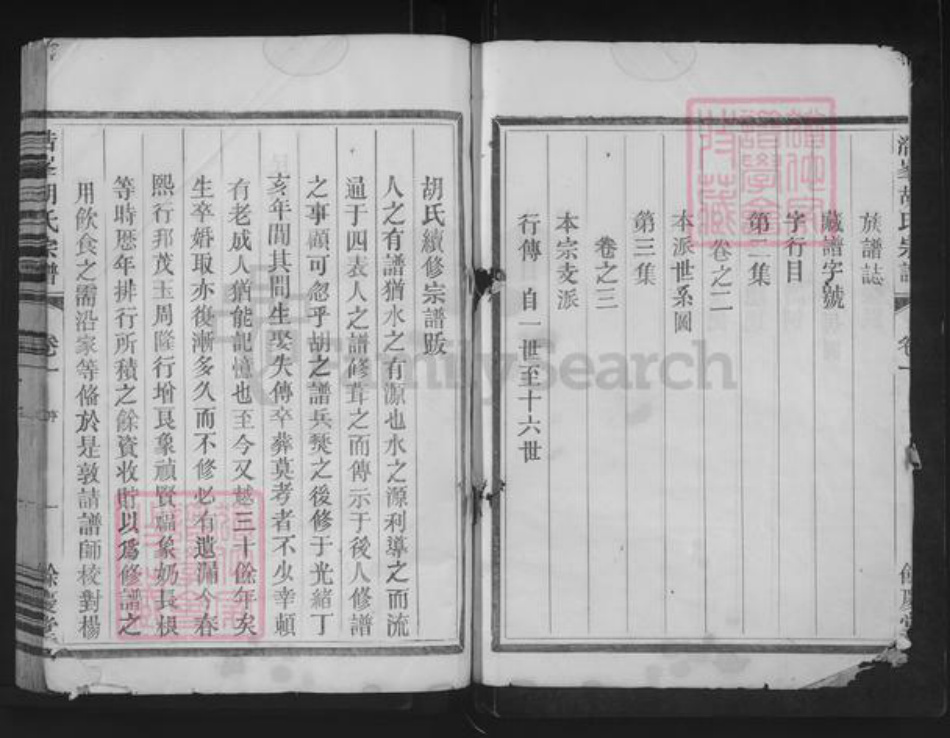 族譜誌
藏譜字號
字行目
第二集
卷之二
本派世系圖
第三集
卷之三
本宗支派
行傳 自一世至十六世
胡氏續修宗譜跋
人之有譜猶水之有源也水之源利導之而流
通于四表人之譜修葺之而傳示于後人修譜
之事顧可忽乎胡之譜兵燹之後修于光緒丁
亥年間其間生娶失傳卒葬莫考者不少幸賴
有老成人猶能記憶也至今又越三十餘年矣
生卒婚取亦復漸多久而不修必有遺漏今春
熙行邦茂玉周隆行增良象禎賢福象奶長根
等時歷年排行所積之餘資收貯以爲修譜之
用飲食之需沿家等偹於是敦請譜師校對楊
胡氏宗譜 卷一
餘慶堂
FamilySearch